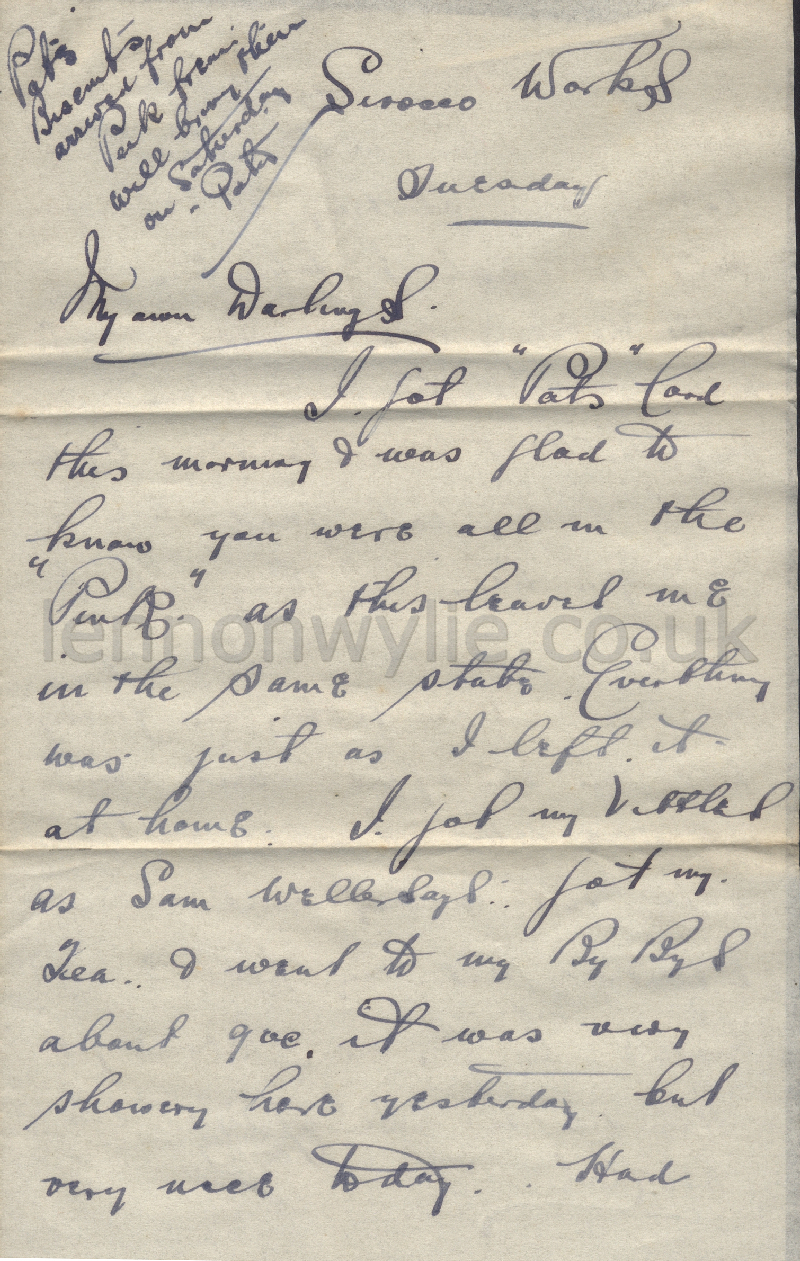 Pat's
Biscuits
arrived from
Peek frean.
will bring them
on Saturday
Pats
Sirocco Works
Tuesday
My own Darlings.
I got "Pats" Card
this morning & was glad to
know you were all in the
"Pink." as this leaves me
in the same state. Everything
was just as I left it
at home. I got my Vittles
as Sam Weller says. got my
Tea. & went to my By Bys
about 9oc. it was very
showery here yesterday but
very nice today. Had
lennonwylie.co.uk